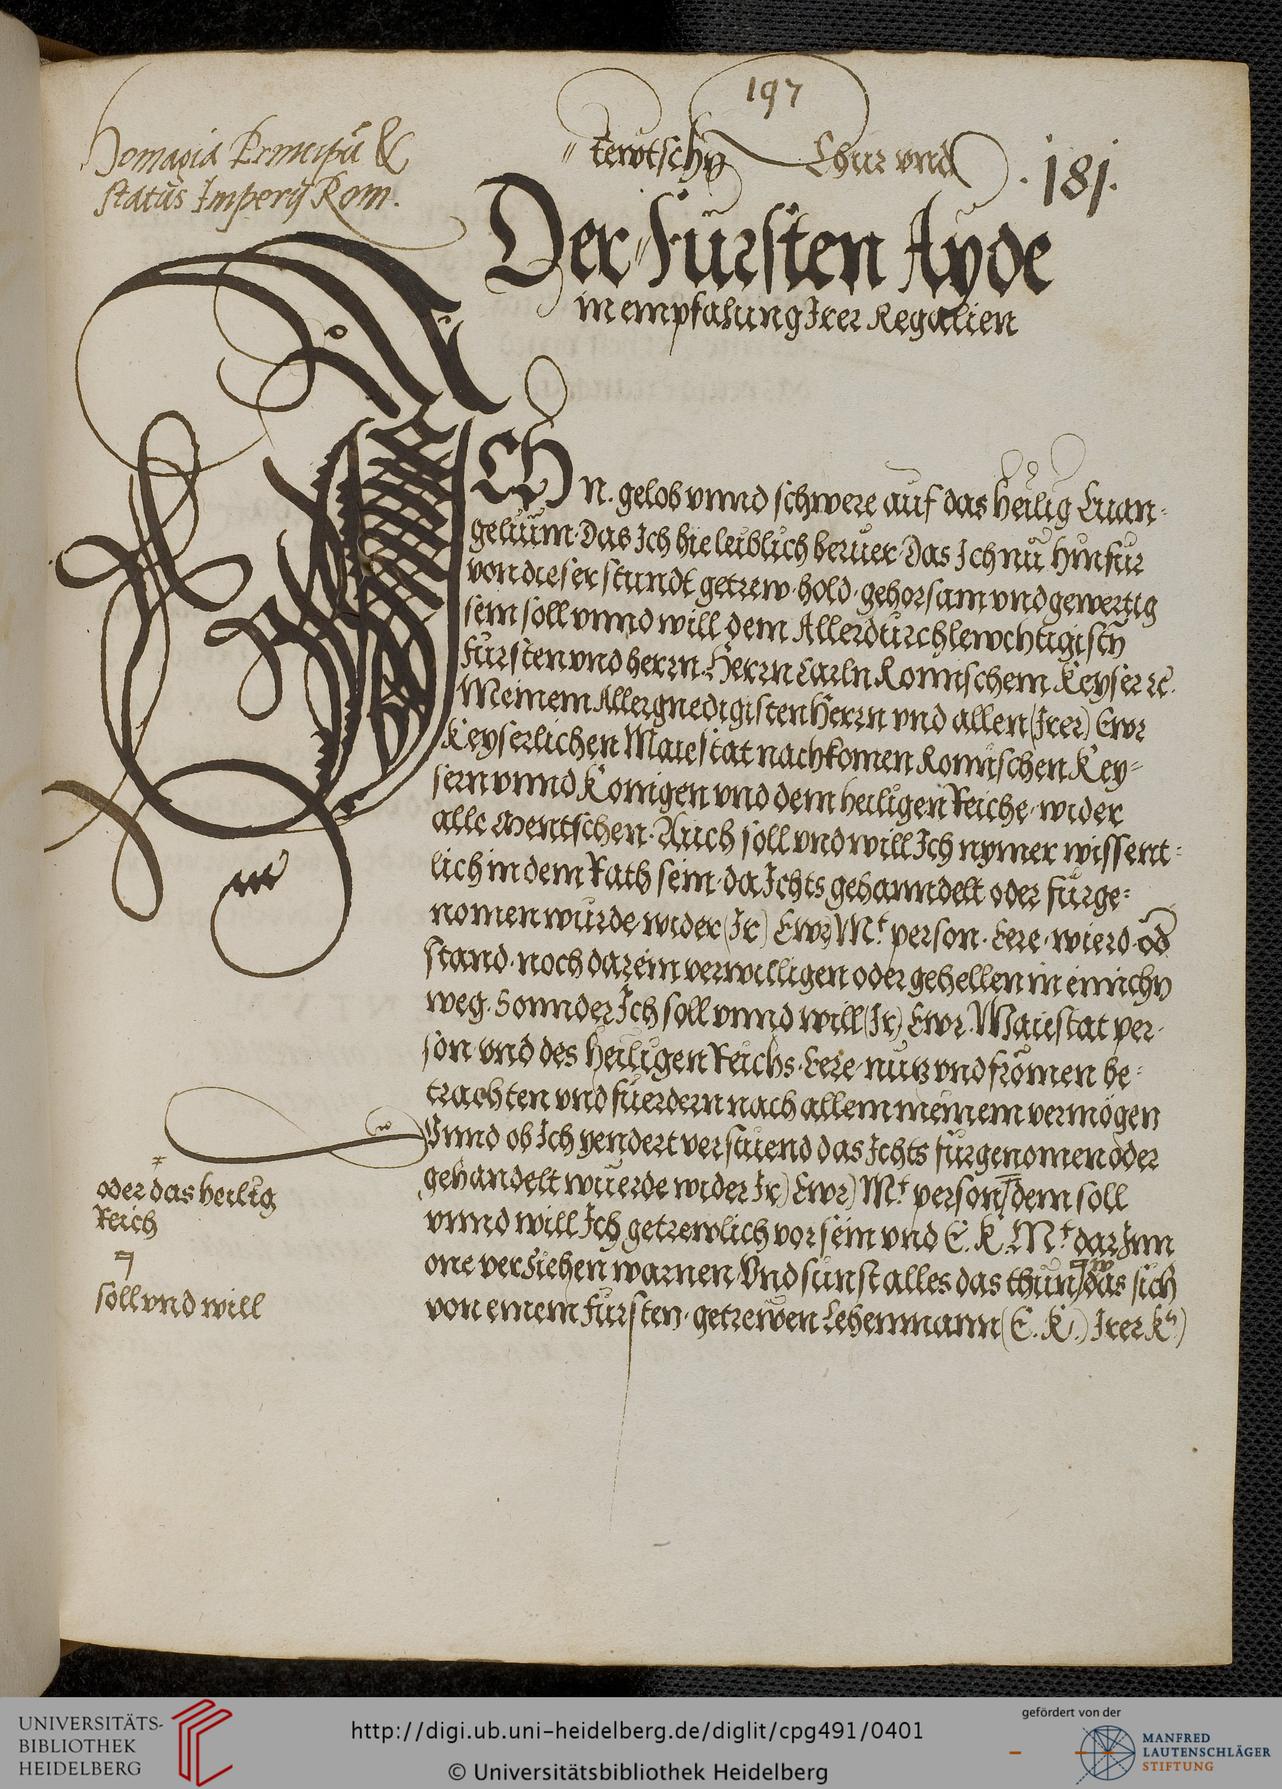 197
Homagia Principũ &
status Imperij Rom.
tewtschn Chur vnd
.181.
Der Fürsten Ayde
in empfahung Irer Regalien
ICH N. gelob vnnd schwere auf das heilig Euan-
geliium. Das Ich hie leiblich beruer. Das Ich nũ hinfur
von dieser stundt getrew. hold. gehorsam vnd gewertig
sein soll vnnd will dem Allerdurchlewchtigistn
Fursten vnd herrn. Herrn Carln Romischem Keyser ꝛc.
Meinem Allergnedigisten Herrn vnd allen (Irer) Ewr
Keyserlichen Maiestat nachkomen Romischen Key-
sern vnnd Konigen vnd dem heiligen Reiche. wider
alle Mentschen. Auch soll vnd will Ich nymer wissent-
lich in dem Rath sein. da Ichts gehanndelt oder furge-
nomen wurde. wider (Ir) Ewr Mt. person. Eere. wierd. od
stand. noch darein verwilligen oder gehellen in einichn
weg. Sonnder Ich soll vnnd will (Ir) Ewr. Maiestat per-
son vnd des heiligen Reichs. Eere. nutz vnd fromen be-
trachten vnd fuerdern nach allem meinem vermögen
Vnnd ob Ich yendert verstuend das Ichts furgenomen oder
gehandelt wuerde wider Ir) Ewr) Mt. person dem soll
vnnd will Ich getrewlich vor sein vnd E. K. Mt. dar Inn
one verziehen warnen. Vnd sunst alles das thun das sich
von einem Fursten. getrewen Lehenmann (E. K.) Irer K)
oder das heilig
Reich
soll vnd will
UNIVERSITÄTS-
BIBLIOTHEK
HEIDELBERG
http://digi.ub.uni-heidelberg.de/diglit/cpg491/0401
© Universitätsbibliothek Heidelberg
gefördert von der
MANFRED
LAUTENSCHLÄGER
STIFTUNG